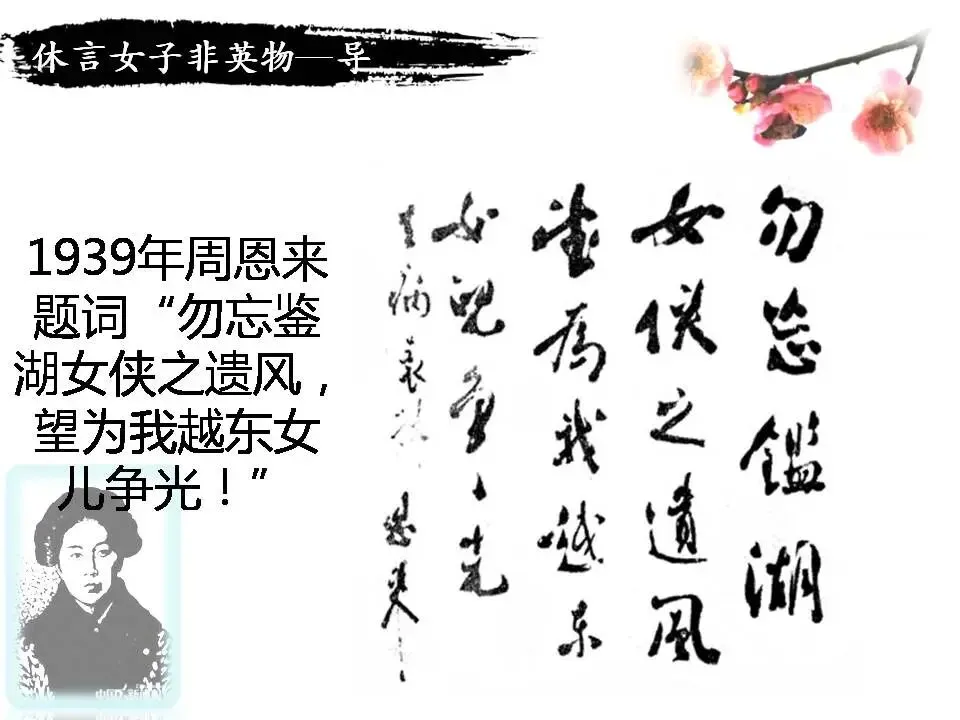 休言女子非英物—导
1939年周恩来
题词“勿忘鉴
湖女侠之遗风，
望为我越东女
儿争光！”
勿忘鑑湖
女俠之遺風
望為我越東
女兒爭光
恩来